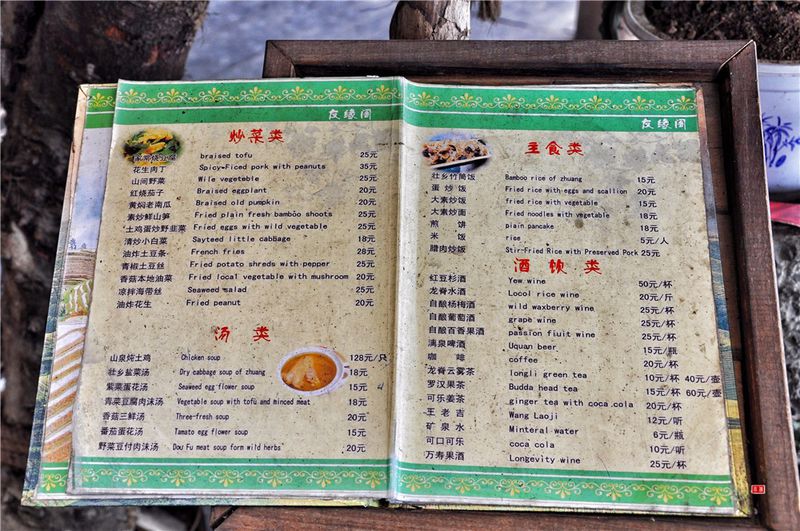 友缘阁
炒菜类
家常烧豆腐 braised tofu 25元
花生肉丁 Spicy-Ficed pork with peanuts 35元
山间野菜 Wile vegeteble 25元
红烧茄子 Braised eggplant 20元
黄焖老南瓜 Braised old pumpkin 20元
素炒鲜山笋 Fried plain fresh bamboo shoots 25元
土鸡蛋炒野韭菜 Fried eggs with wild vegetable 25元
清炒小白菜 Sayteed little cabbage 18元
油炸土豆条 French fries 28元
青椒土豆丝 Fried potato shreds with pepper 25元
香菇本地油菜 Fried local vegetable with mushroom 20元
凉拌海带丝 Seaweed salad 25元
油炸花生 Fried peanut 20元
汤 类
山泉炖土鸡 Chicken soup 128元/只
壮乡盐菜汤 Dry cabbage soup of zhuang 18元
紫菜蛋花汤 Seaweed egg flower soup 15元
青菜豆腐肉沫汤 Vegetable soup with tofu and minced meat 18元
香菇三鲜汤 Three-fresh soup 20元
番茄蛋花汤 Tamato egg flower soup 15元
野菜豆付肉沫汤 Dou Fu meat soup form wild herbs 20元
友缘阁
主食类
壮乡竹筒饭 Bamboo rice of zhuang 15元
蛋炒饭 Fried rice with eggs and scallion 20元
大素炒饭 fried rice with vegetable 15元
大素炒面 Fried noodles with vegetable 18元
煎饼 plain pancake 18元
米饭 rice 5元/人
腊肉炒饭 Stir-Fried Rice with Preserved Pork 25元
酒饮类
红豆杉酒 Yew wine 50元/杯
龙脊水酒 Locol rice wine 20元/斤
自酿杨梅酒 wild waxberry wine 25元/杯
自酿葡萄酒 grape wine 25元/杯
自酿百香果酒 passion fiuit wine 25元/杯
漓泉啤酒 Uquan beer 15元/瓶
咖啡 coffee 20元/杯
龙脊云雾茶 longli green tea 10元/杯 40元/壶
罗汉果茶 Budda head tea 15元/杯 60元/壶
可乐姜茶 ginger tea with coca cola 20元/杯
王老吉 Wang Laoji 12元/听
矿泉水 Minteral water 6元/瓶
可口可乐 coca cola 10元/听
万寿果酒 Longevity wine 25元/杯